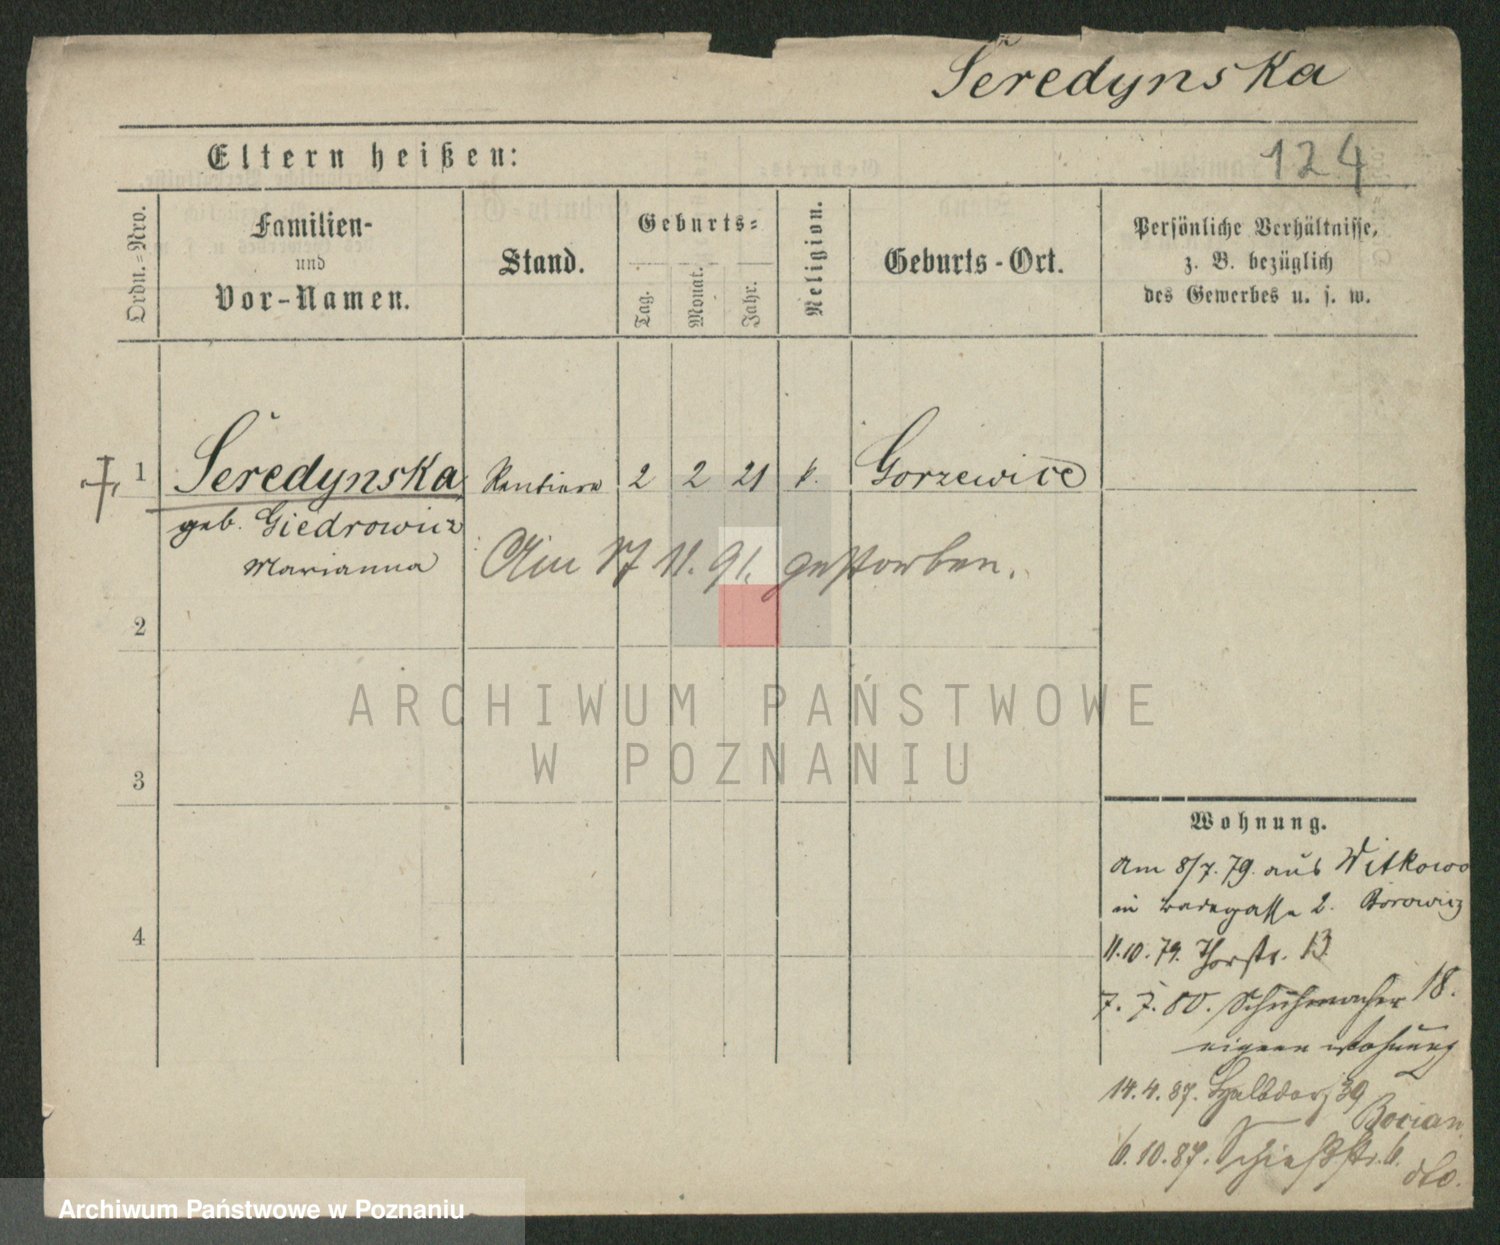 Seredynska
124
Eltern heißen:
Ordn.-Nro.
Familien-
und
Vor-Namen.
Stand.
Geburts-
Tag.
Monat.
Jahr.
Religion.
Geburts-Ort.
Persönliche Verhältnisse,
z. B. bezüglich
des Gewerbes u. s. w.
1 Seredynska Rentiere 2 2 21 k. Gorzewice
geb. Giedrowicz
Marianna
Am 17 11. 91. gestorben.
2
ARCHIWUM PAŃSTWOWE
W POZNANIU
3
Wohnung.
Am 8/7. 79. aus Witkowo
in Badegasse 2. Borowicz
4
11.10.79. Thorstr. 13
7. 7. 80. Schuhmacher 18.
eigene Wohnung
14.4.87. Halbdorf 39
Bocian
6.10.87. Schießstr. 6.
dto.
Archiwum Państwowe w Poznaniu